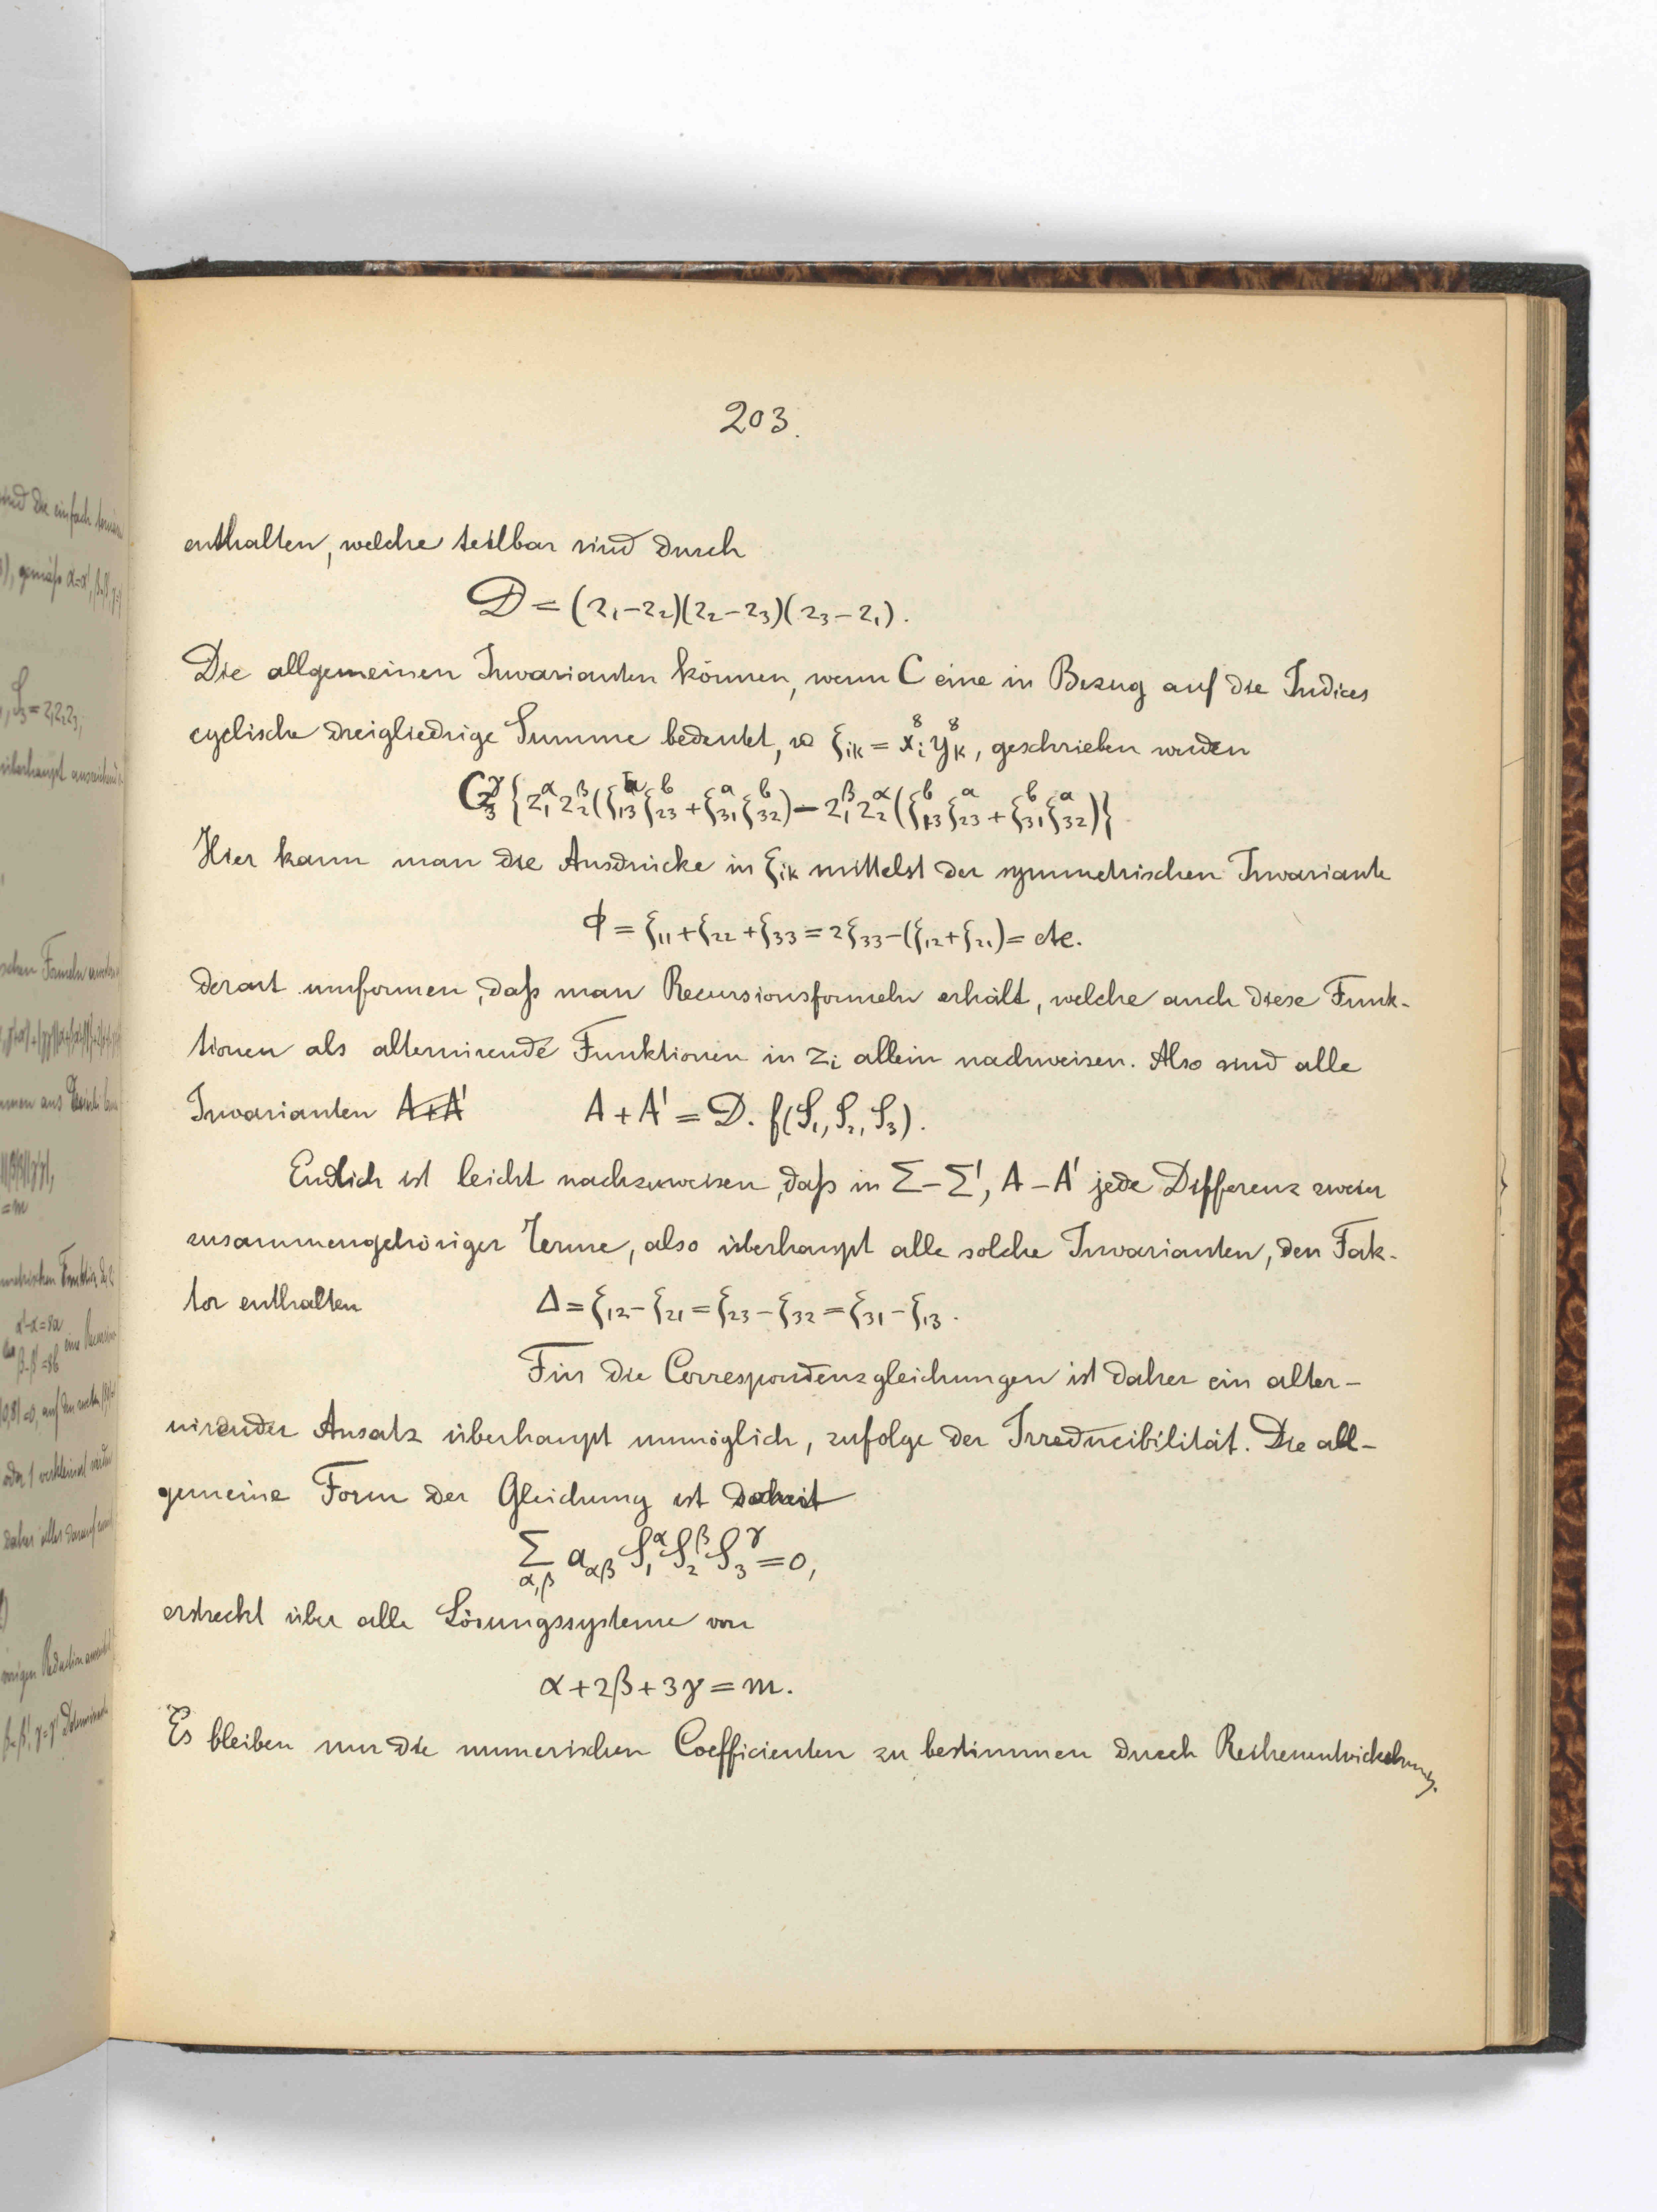 203.
enthalten, welche teilbar sind durch
D = (z₁-z₂)(z₂-z₃)(z₃-z₁).
Die allgemeinen Invarianten können, wenn C eine in Bezug auf die Indices
cyclische dreigliedrige Summe bedeutet, ξᵢₖ = xᵢ⁸yₖ⁸, geschrieben werden
C z₃^γ {z₁^α z₂^β (ξ₁₃^a ξ₂₃^b + ξ₃₁^a ξ₃₂^b) - z₁^β z₂^α (ξ₁₃^b ξ₂₃^a + ξ₃₁^b ξ₃₂^a)}
Hier kann man die Ausdrücke in ξᵢₖ mittelst der symmetrischen Invariante
ϕ = ξ₁₁ + ξ₂₂ + ξ₃₃ = 2ξ₃₃ - (ξ₁₂ + ξ₂₁) = etc.
derart umformen, daß man Recursionsformeln erhält, welche auch diese Funk-
tionen als alternirende Funktionen in zᵢ allein nachweisen. Also sind alle
Invarianten A+A' A + A' = D. f(S₁, S₂, S₃).
Endlich ist leicht nachzuweisen, daß in Σ-Σ', A-A' jede Differenz zweier
zusammengehöriger Terme, also überhaupt alle solche Invarianten, den Fak-
tor enthalten Δ = ξ₁₂ - ξ₂₁ = ξ₂₃ - ξ₃₂ = ξ₃₁ - ξ₁₃.
Für die Correspondenzgleichungen ist daher ein alter-
nirender Ansatz überhaupt unmöglich, zufolge der Irreducibilität. Die all-
gemeine Form der Gleichung ist
Σ_{α,β} a_{αβ} S₁^α S₂^β S₃^γ = 0,
erstreckt über alle Lösungssysteme von
α + 2β + 3γ = m.
Es bleiben nur die numerischen Coefficienten zu bestimmen durch Reihenentwickelung.